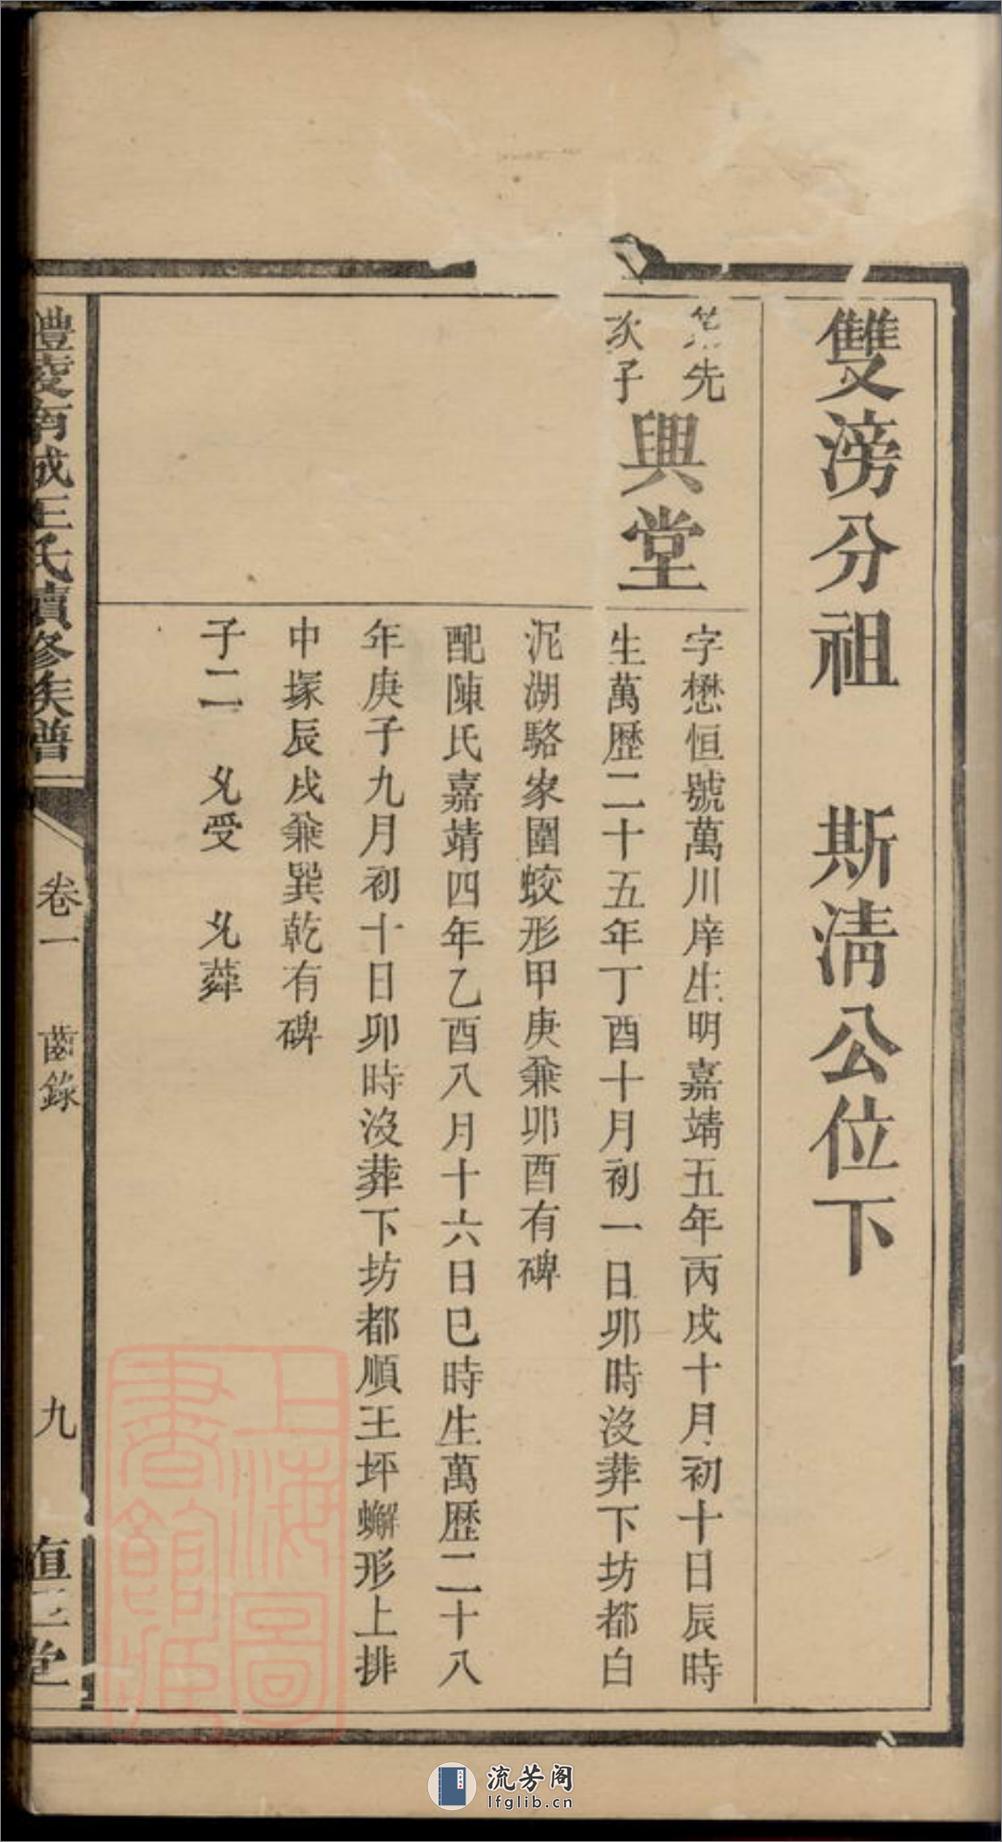 雙滂分祖　斯淸公位下
先
次子
興堂
字懋恒號萬川庠生明嘉靖五年丙戌十月初十日辰時
生萬歷二十五年丁酉十月初一日卯時沒葬下坊都白
泥湖駱家圍蛟形甲庚兼卯酉有碑
配陳氏嘉靖四年乙酉八月十六日巳時生萬歷二十八
年庚子九月初十日卯時沒葬下坊都順王坪蠏形上排
中塚辰戌兼巽乾有碑
子二　允受　允葬
醴陵南城王氏續修族譜　卷一　齒錄　九　堂
上海圖書館藏
流芳阁
lfglib.cn